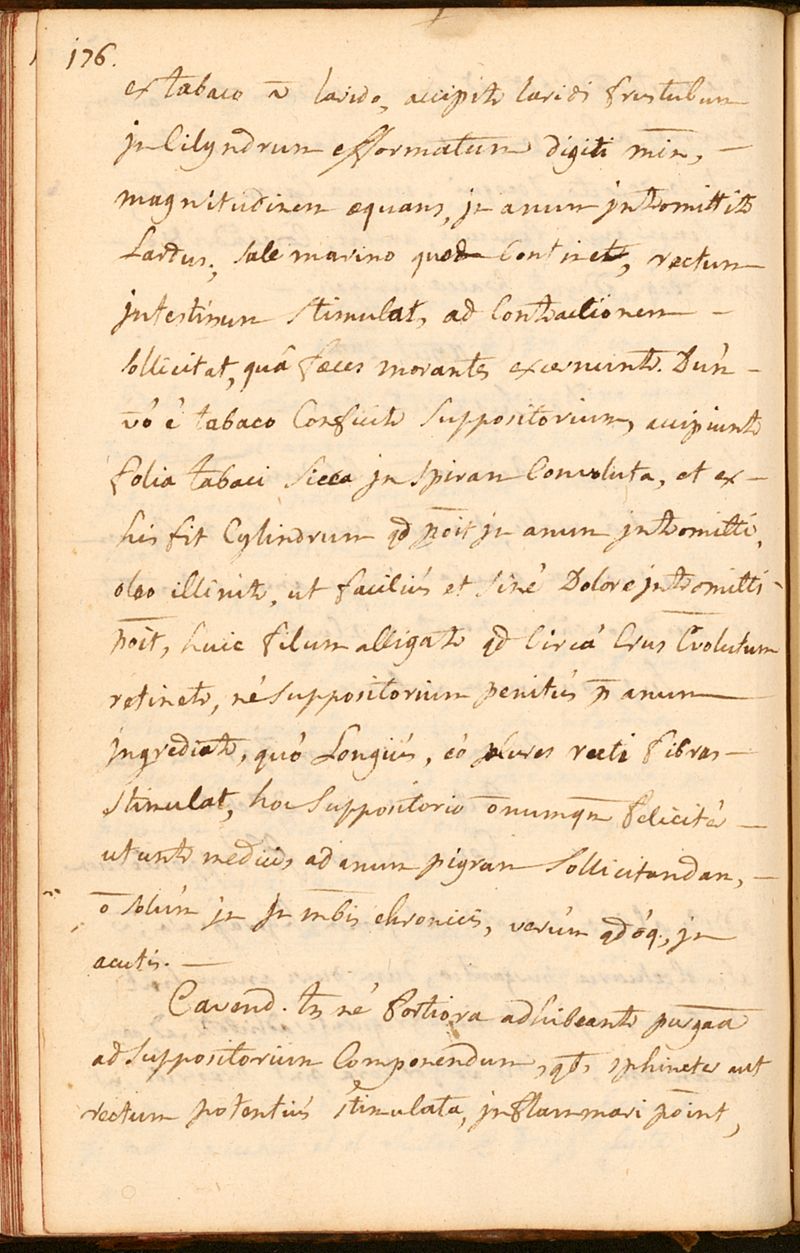 176.
ex tabaco ā larido, accipitr laridi frustulum
jn Cilyndrum efformatum digiti min, —
magnitudinem æquans, jn anum jntromittitr
Lardus, sale marino quod continet, rectum
jntestinum stimulat, ad Contractionem —
sollicitat, quâ fæces morantes excernuntr. Dùm —
vō è tabaco Conficitr Suppositorium, accipiuntr
folia tabaci sicca jn spiram Convoluta, et ex —
his fit Cylindrum qd pōit jn anum jntromitti,
oleo illinitr, ut faciliùs et sinè Dolore jntromitti
pōit, huic filum alligatr qd Circà Crus C̄volutum
retinetr, nè Suppositorium penitùs p anum —
jngrediatr, quò Longiùs, eò plures recti fibras —
stimulat, hoc Suppositorio ōnumqm felicitèr —
utuntr medicis ad anum pigram Sollicitandam, —
ō solùm jn jn mbis chronicis, verùm qdóq, jn
acutis. —
Cavend. tn nè fortiora adhibeantr purgāā
ad Suppositorium Componendum, qbs sphincter aut
rectum potentiùs stimulata, jnflammari pōint,